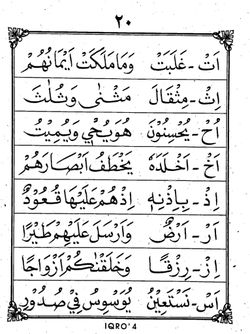 ٢٠
اَتْ - غَلَبَتْ وَمَا مَلَكَتْ اَيْمَانُهُمْ
اِثْ - مِثْقَالَ مَثْنٰى وَثُلٰثَ
اُحْ - يُحْسِنُوْنَ هُوَ يُحْيٖ وَيُمِيْتُ
اَخْ - اَخْلَدَهٗ يَخْطَفُ اَبْصَارَهُمْ
اِذْ - بِاِذْنِهٖ اِذْهُمْ عَلَيْهَا قُعُوْدٌ
اَرْ - اَرْضٌ وَاَرْسَلَ عَلَيْهِمْ طَيْرًا
اِزْ - رِزْقًا وَخَلَقْنٰكُمْ اَزْوَاجًا
اَسْ - نَسْتَعِيْنُ يُوَسْوِسُ فِيْ صُدُوْرِ
IQRO' 4